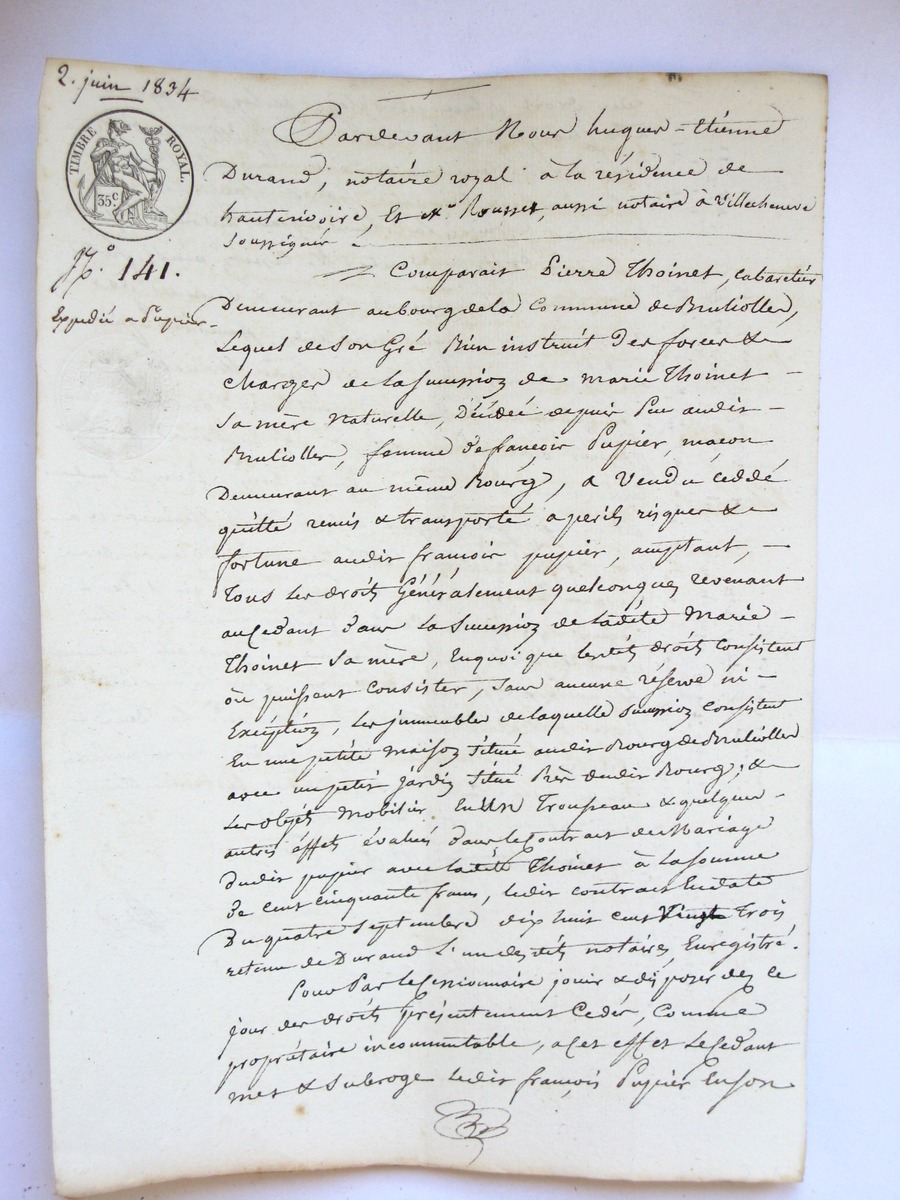 2. juin 1834
TIMBRE ROYAL.
35 C
N.o 141.
Expédié a Pupier
Pardevant Nous hugues-Etienne
Durand, notaire royal à la résidence de
hauterivoire, Et Me Rousset, aussi notaire à Villecheneve
soussignés
Comparait Pierre Thoinet, cabaretier
Demeurant au bourg de la Commune de Brulioles,
Lequel de son Gré Bien instruit Des forces &
charges de la succession de marie Thoinet
sa mère Naturelle, Décédée depuis Peu audit
Brulioles, femme de françois Pupier, maçon
Demeurant au même Bourg, a Vendu cèddé
quitté remis & transporté a perils risques &
fortune audit francois pupier, acceptant,
Tous les droits Généralement quelconques revenant
au Cedant dans la Succession de Ladite Marie
Thoinet sa mère, En quoi que lesdits droits Consistent
ou puissent Consister, sans aucune réserve ni
Exception, les immeubles de laquelle succession Consistent
En une petite Maison située audit Bourg de Brulioles
avec un petit jardin situé Rière dudit Bourg; &
les objets Mobilier En Un Trousseau & quelques
autres éffets évalués dans le Contrat de Mariage
dudit pupier avec ladite Thoinet à la somme
de cent cinquante francs, ledit contrat En date
Du quatre septembre dix huit cent Vingt Trois
retenu de Durand L'un desdits notaires, Enregistré.
Pour Par le Cessionnaire jouir & disposer dez ce
jour des droits Présentement Cedés, Comme
propriétaire incommutable, a cet effet Le Cedant
met & subroge ledit françois Pupier En son